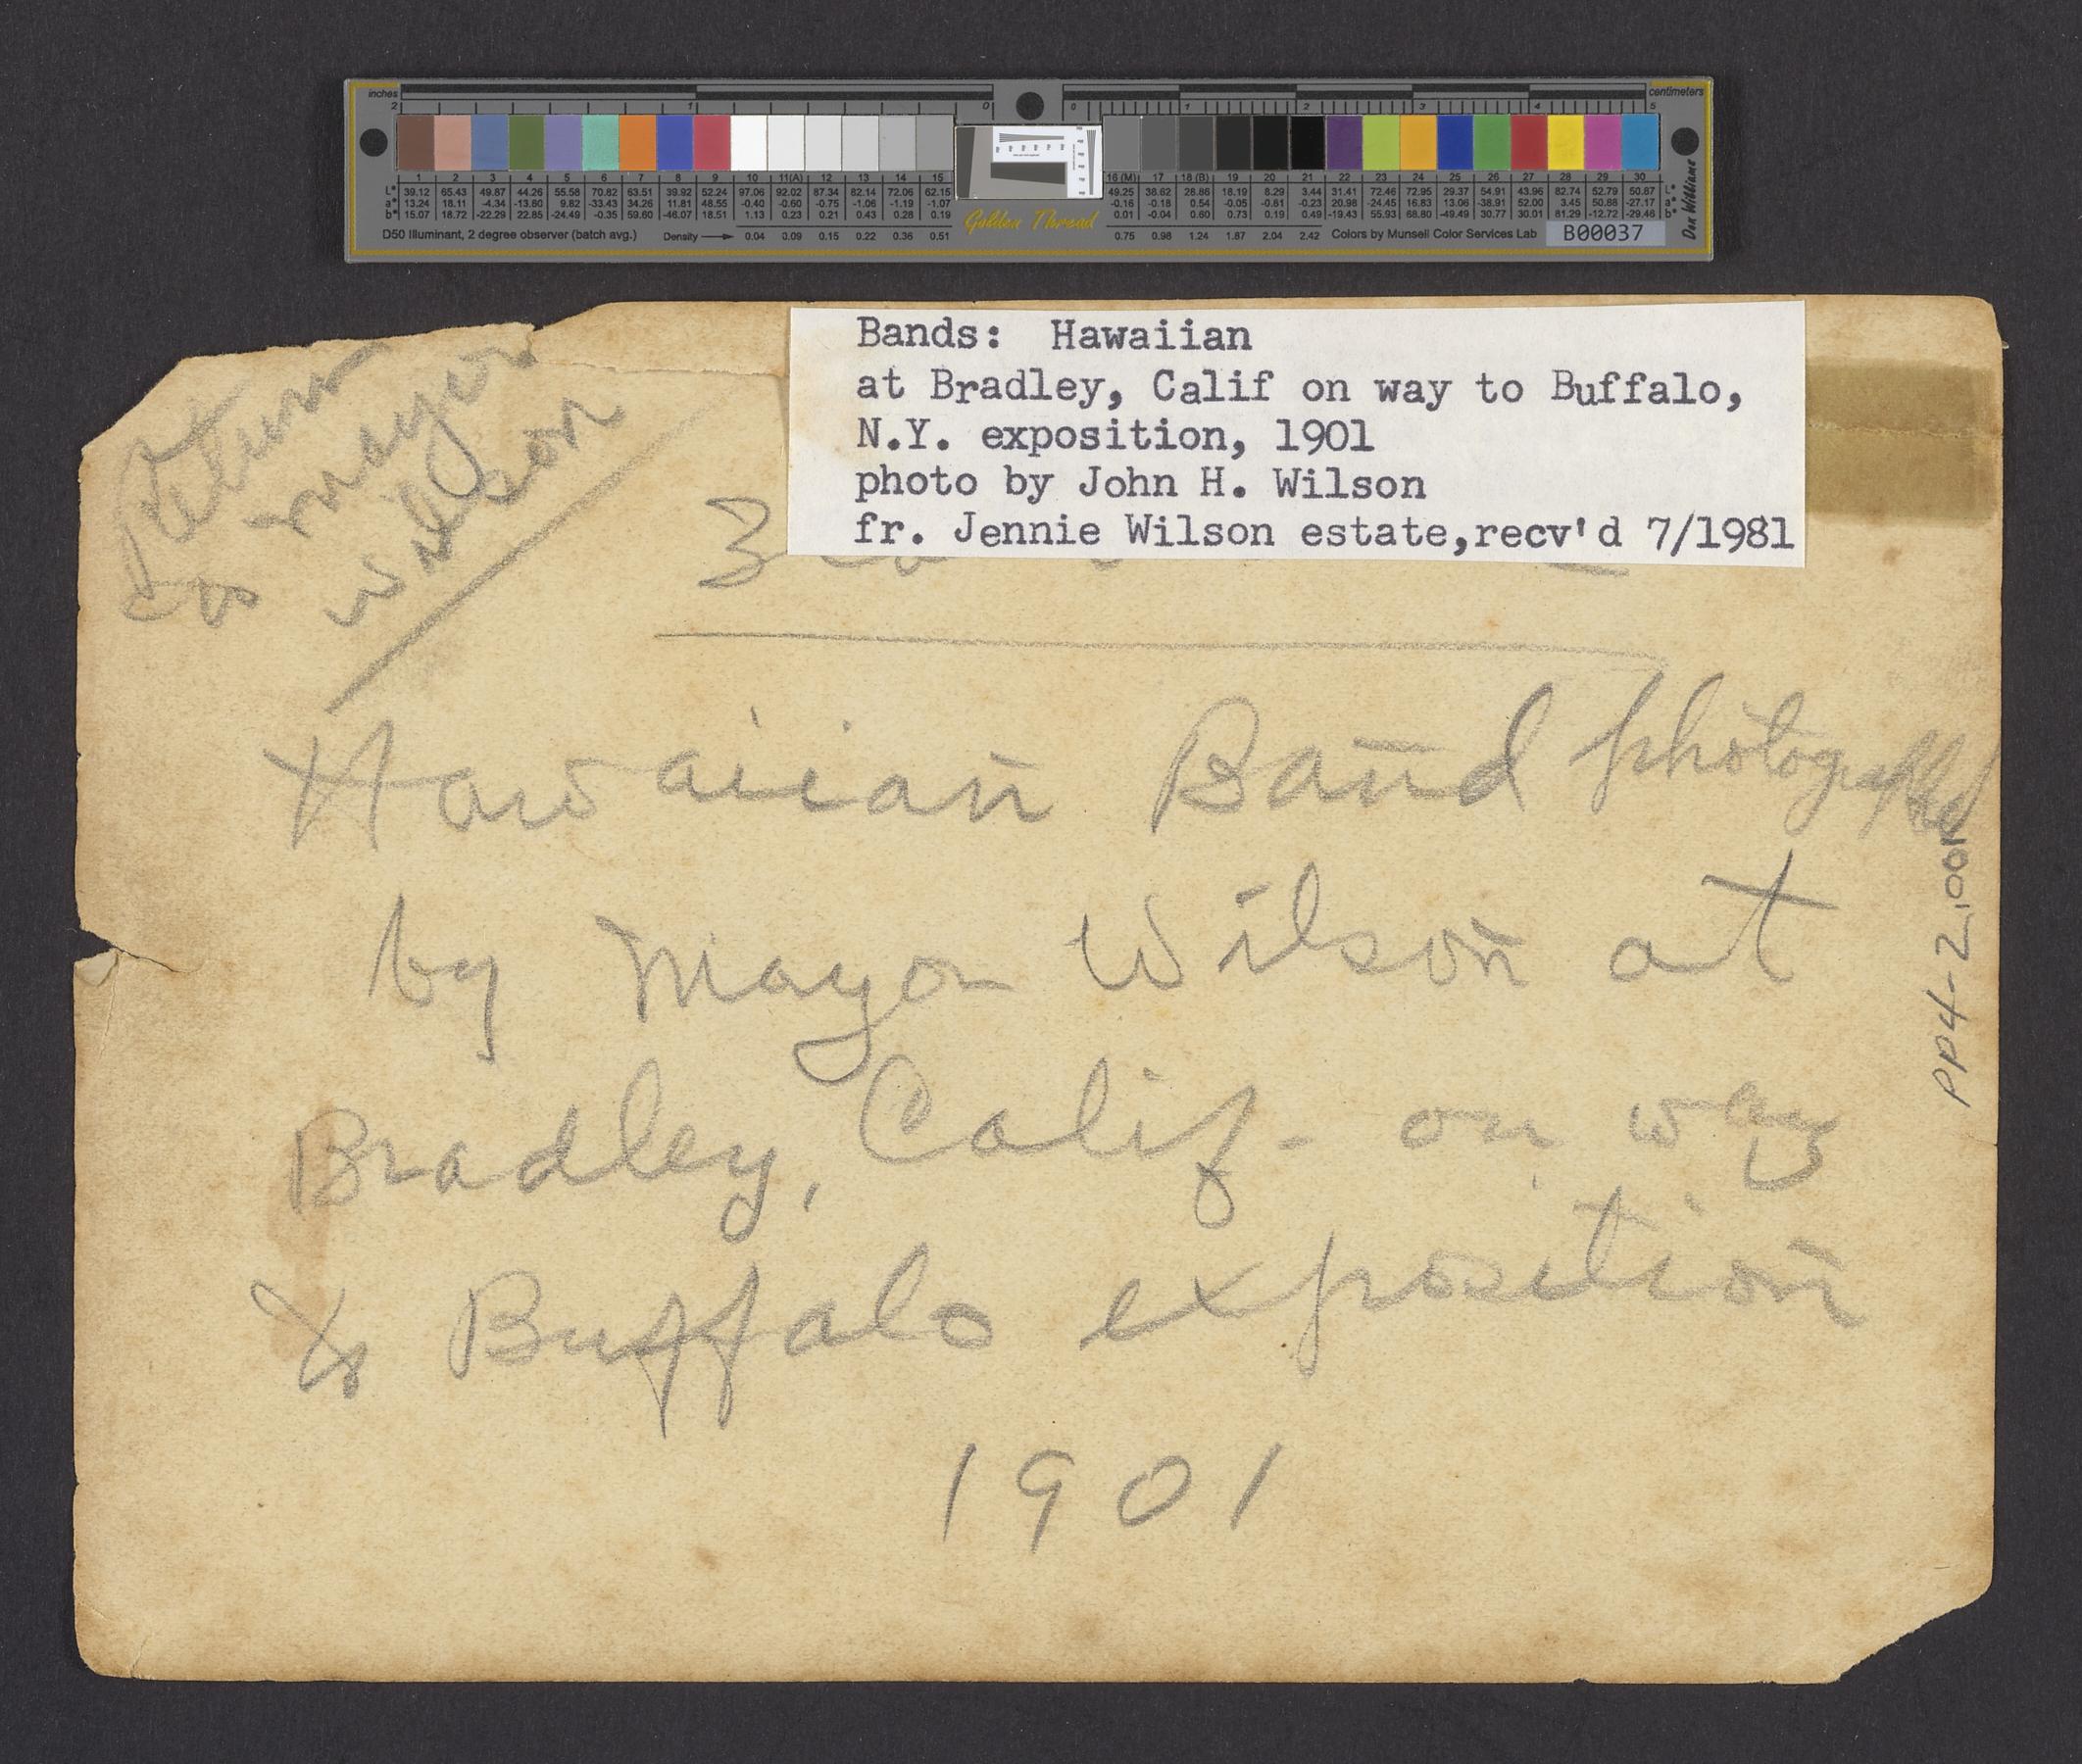 inches
centimeters
2 1 0 0 1 2 3 4 5
1 2 3 4 5 6 7 8 9 10 11(A) 12 13 14 15 16 (M) 17 18 (B) 19 20 21 22 23 24 25 26 27 28 29 30
L* 39.12 65.43 49.87 44.26 55.56 70.82 63.51 39.92 52.24 97.06 92.02 87.34 82.14 72.06 62.15 49.25 38.62 28.86 18.19 8.29 3.44 31.41 72.46 72.95 29.37 54.91 43.96 82.74 52.79 50.87 L*
a* 13.24 18.11 -4.34 -13.80 9.82 -33.43 34.26 11.81 48.55 -0.40 -0.60 -0.75 -1.06 -1.19 -1.07 -0.16 -0.18 0.54 -0.05 -0.81 -0.23 20.98 -24.45 16.83 13.06 -38.91 52.00 3.45 50.88 -27.17 a*
b* 15.07 18.72 -22.29 22.85 -24.49 -0.35 59.60 -46.07 18.51 1.13 0.23 0.21 0.43 0.28 0.19 0.01 -0.04 0.60 0.73 0.19 0.49 -19.43 55.93 68.80 -49.49 30.77 30.01 81.29 -12.72 -29.46 b*
D50 Illuminant, 2 degree observer (batch avg.) Density 0.04 0.09 0.15 0.22 0.36 0.51 0.75 0.98 1.24 1.87 2.04 2.42 Colors by Munsell Color Services Lab B00037
Golden Thread
Don Williams
Bands: Hawaiian
at Bradley, Calif on way to Buffalo,
N.Y. exposition, 1901
photo by John H. Wilson
fr. Jennie Wilson estate,recv'd 7/1981
Return
to mayor
wilson
Hawaiian Band photographed
by Mayor Wilson at
Bradley, Calif- on way
to Buffalo exposition
1901
PP4-2.001